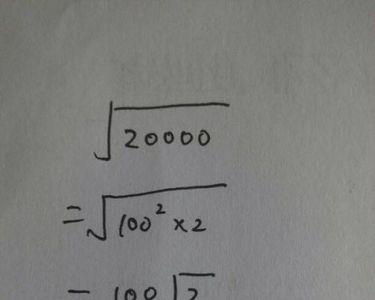 √20000
= √100² × 2
= 100√2